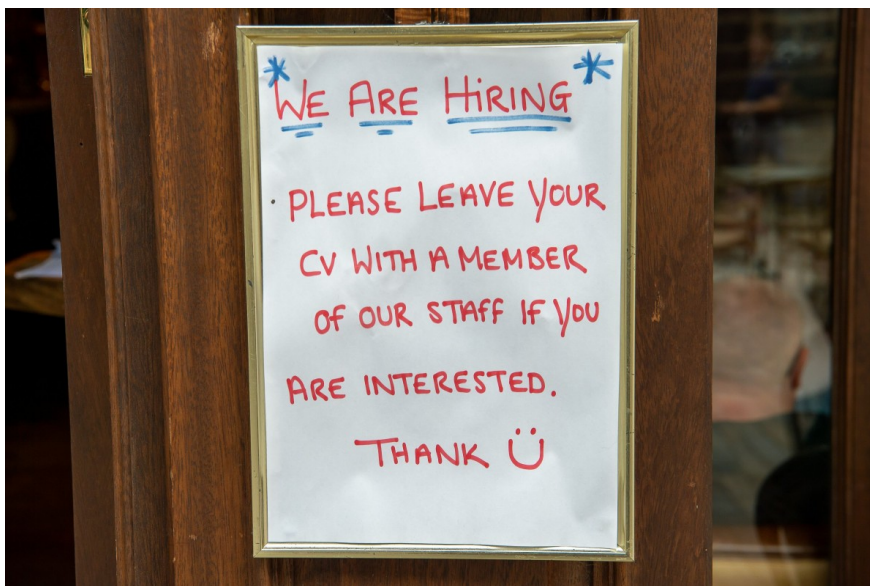 *WE ARE HIRING*
PLEASE LEAVE YOUR
CV WITH A MEMBER
OF OUR STAFF IF YOU
ARE INTERESTED.
THANK Ü